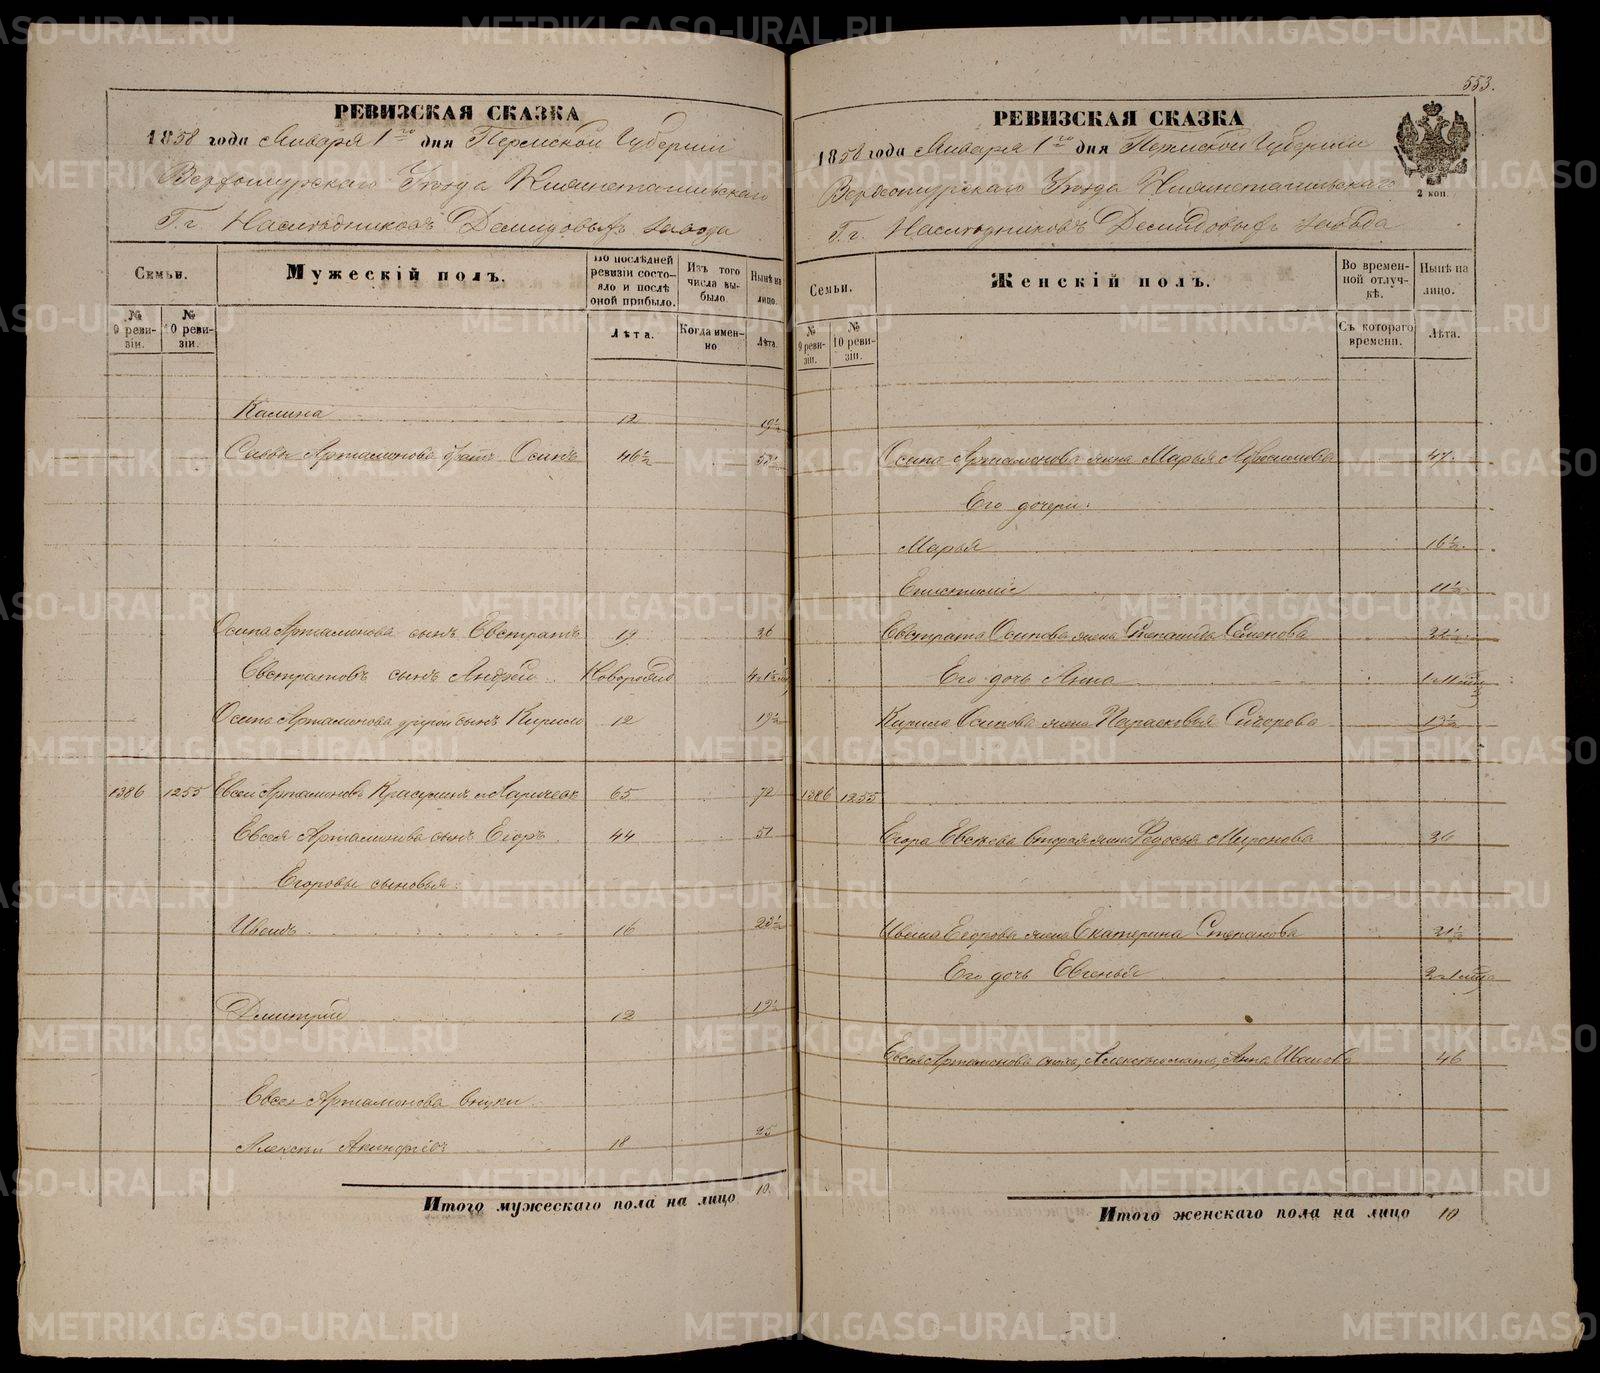 РЕВИЗСКАЯ СКАЗКА
1858 года Января 1го дня Пермской Губернии
Верхотурскаго Уѣзда Нижнетагильскаго
Г.г. Наслѣдниковъ Демидовыхъ завода
Семьи.
Мужескій полъ.
По послѣдней ревизіи состояло и послѣ оной прибыло.
Изъ того числа выбыло
Нынѣ на лицо.
№ 9 ревизіи.
№ 10 ревизіи.
Лѣта.
Когда именно
Лѣта.
Калина 12 19½
Савы Артамонова братъ Осипъ 46½
Осипа Артамонова сынъ Евстратъ 19 26
Евстратовъ сынъ Андрей Новорожд
Осипа Артамонова другой сынъ Кирило 12 19½
1386 1255 Евсей Артамоновъ 65 72
Евсея Артамонова сынъ Егоръ 44 51
Егоровы сыновья:
Иванъ 16 23½
Дмитрий 12 19½
Евсея Артамонова внуки
Алексѣй Акинфіевъ 18 25
Итого мужескаго пола на лицо 10.
553.
РЕВИЗСКАЯ СКАЗКА
1858 года Января 1го дня Пермской Губернии
Верхотурскаго Уѣзда Нижнетагильскаго
Г.г. Наслѣдниковъ Демидовыхъ завода
2 коп.
Семьи.
Женскій полъ.
Во временной отлучкѣ.
Нынѣ на лицо.
№ 9 ревизіи.
№ 10 ревизіи.
Съ котораго времени.
Лѣта.
Осипа Артамонова жена Марья 47
Его дочери:
Марья 16½
11½
Евстрата Осипова жена Степанида Семенова 22½
Его дочь Анна
Кирила Осипова жена Парасковья Сидорова 19½
1386 1255
Егора Евсѣева вторая жена Федосья Миронова 36
Ивана Егорова жена Екатерина Степанова 21½
Его дочь Евгенья
Евсея Артамонова Анна Иванова 46
Итого женскаго пола на лицо 10
METRIKI.GASO-URAL.RU